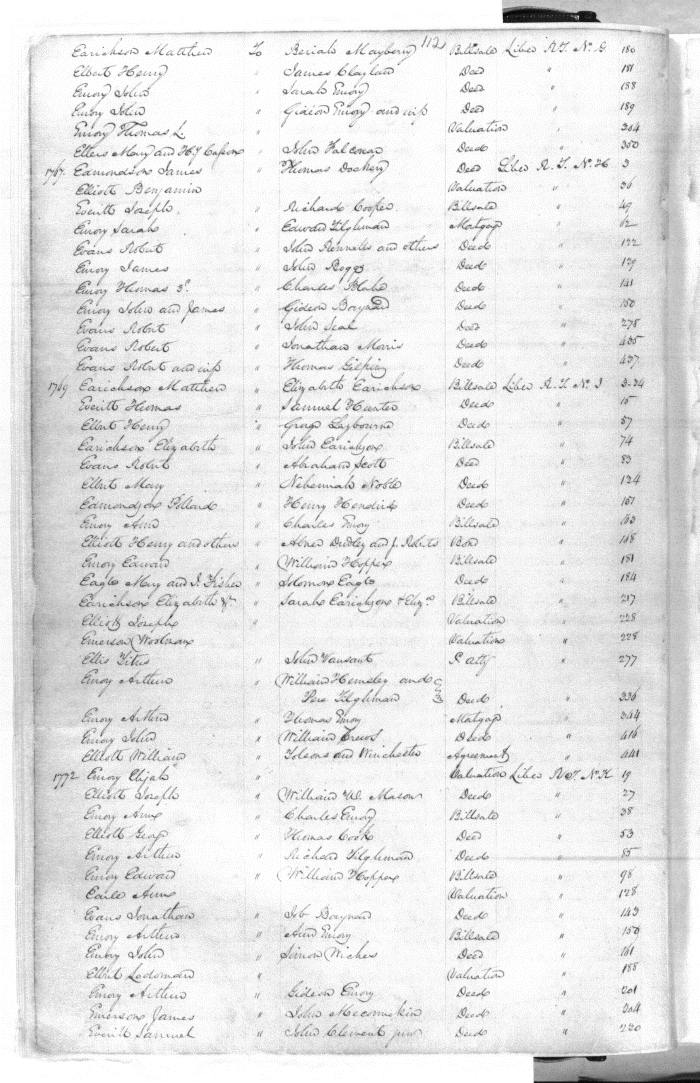 112
Earickson Matthew To Beriah Mayberry Billsale Liber R.T. No. G 180
Elbert Henry " James Clayland Deed " 181
Emory John " Sarah Emory Deed " 188
Emory John " Gideon Emory and wife Deed " 189
Emory Thomas L. " Valuation " 304
Ellers Mary and " John Falconar Deed " 350
1767. Edmondson James " Thomas Dockery Deed Liber R.T. No. H 3
Elliott Benjamin Valuation " 36
Everitt Joseph " Richard Cooper Billsale " 49
Emory Sarah " Edward Tilghman Mortgage " 12
Evans Robert " John Rennalls and others Deed " 122
Emory James " John Beggs Deed " 129
Emory Thomas 3d. " Charles Blake Deed " 141
Emory John and James " Gideon Baynard Deed " 150
Evans Robert " John Seal Deed " 278
Evans Robert " Jonathan Morris Deed " 435
Evans Robert and wife " Thomas Gilpin Deed " 437
1769 Earickson Matthew " Elizabeth Earickson Billsale Liber R.T. No. I 3-24
Everitt Thomas " Samuel Hunter Deed " 15
Elbert Henry " George Laybourne Deed " 57
Earickson Elizabeth " John Earickson Billsale " 74
Evans Robert " Abraham Scott Deed " 83
Elbert Mary " Nehemiah Noble Deed " 124
Edmondson Pollard " Henry Hendrix Deed " 161
Emory Ann " Charles Emory Billsale " 163
Elliott Henry and others " Abner Dudley and J. Roberts Bond " 168
Emory Edward " William Hopper Billsale " 181
Eagle Mary and J. Fisher " Solomon Eagle Deed " 184
Earickson Elizabeth &c. " Sarah Earickson & Eliza. Billsale " 217
Elliott Joseph " Valuation " 228
Emerson Woodman Valuation " 228
Ellis Titus " John Vansant P. atty " 277
Emory Arthur " William Hemsley and
Pere Tilghman Deed " 336
Emory Arthur " Thomas Emory Mortgage " 344
Emory John " William Crews Deed " 416
Elliott William " Tolsons and Winchester Agreement " 441
1772 Emory Elijah " Valuation Liber R.T. No. K 19
Elliott Joseph " William W. Mason Deed " 27
Emory Anne " Charles Emory Billsale " 38
Elliott George " Thomas Cook Deed " 53
Emory Arthur " Richard Tilghman Deed " 85
Emory Edward " William Hopper Billsale " 98
Earle Anne Valuation " 128
Evans Jonathan " Job Baynard Deed " 143
Emory Arthur " Ann Emory Billsale " 150
Emory John " Simon Wickes Deed " 161
Elbert Lodoman " Valuation " 188
Emory Arthur " Gideon Emory Deed " 201
Emerson James " John Meconnekin Deed " 204
Everitt Samuel " John Clement junr Deed " 220